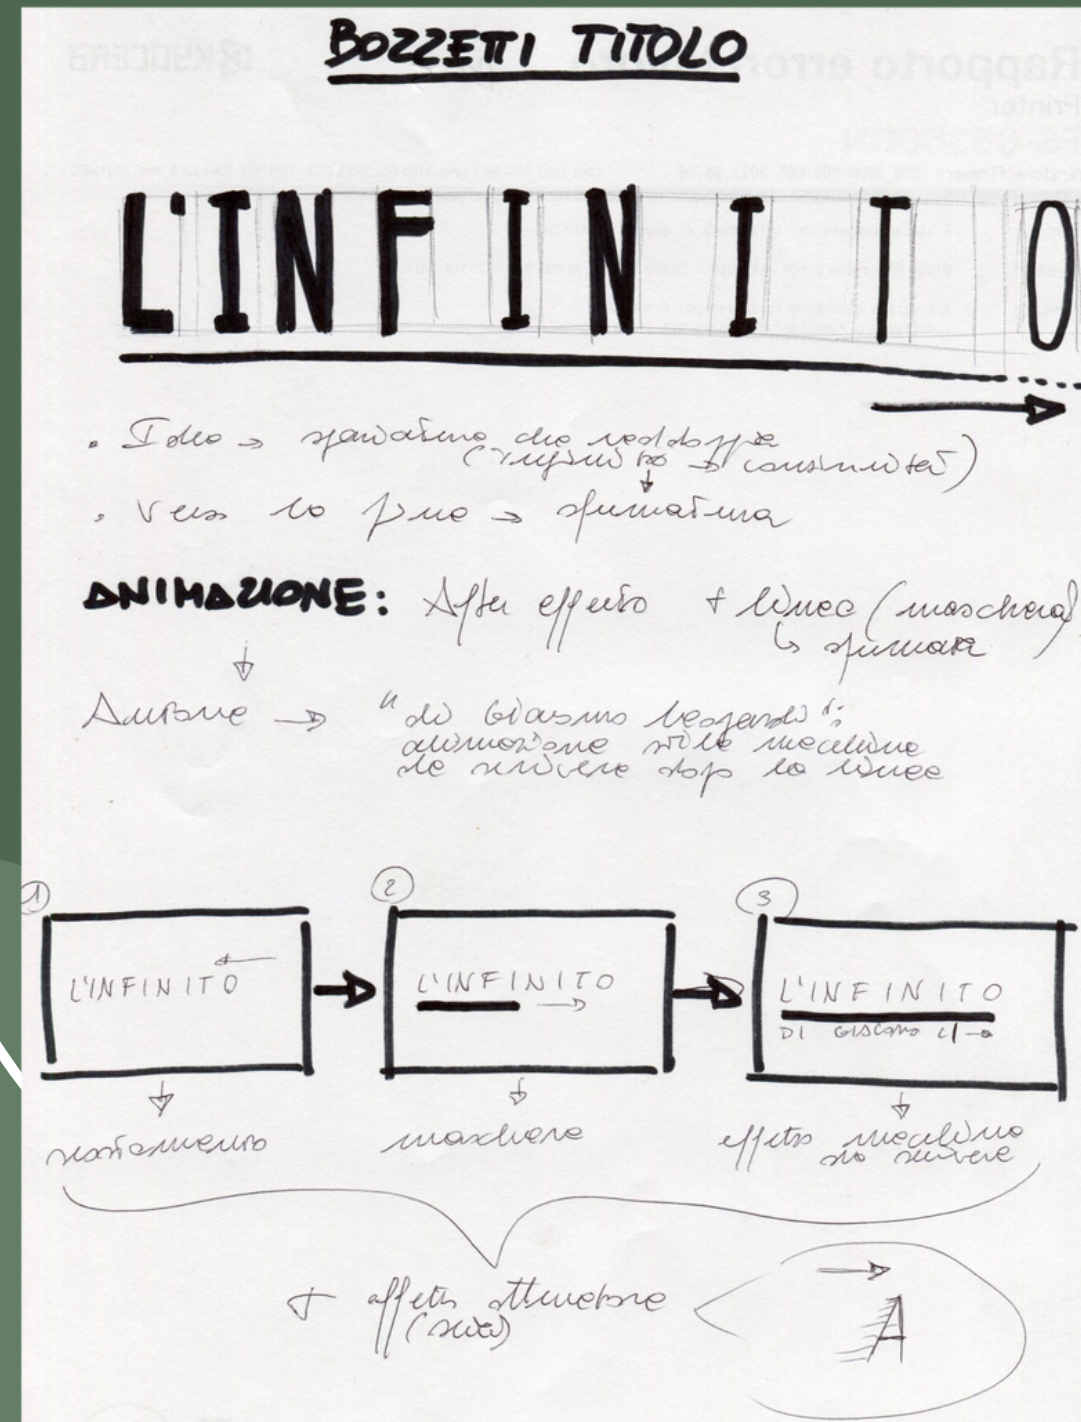 BOZZETTI TITOLO
L'INFINITO
• Idea → spaziatura che raddoppia
(infinito → continuità)
• Verso la fine → sfumatura
ANIMAZIONE: After effects + linea (maschera)
↳ sfumata
Autore → "di Giacomo Leopardi":
animazione stile macchina
da scrivere dopo la linea
1
2
3
L'INFINITO
L'INFINITO
L'INFINITO
DI GIACOMO L
maschera
effetto macchina
da scrivere
+ effetto
(scia)
A